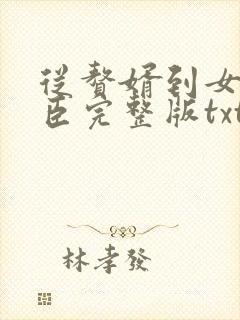 從贅婿到女
臣完整版txt
林孝發